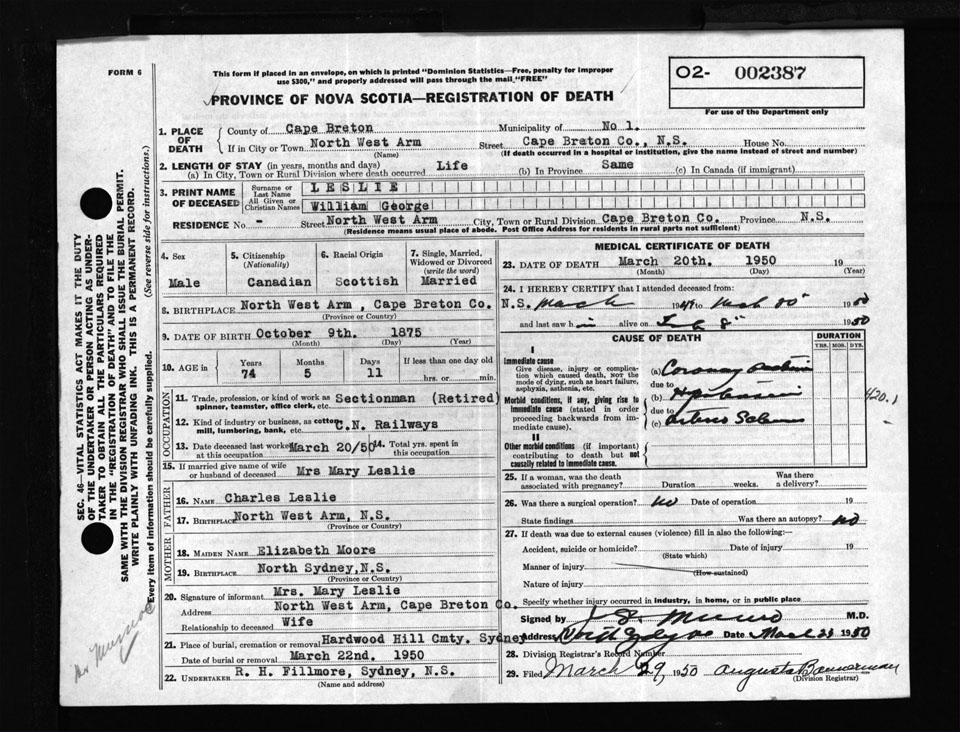 FORM 6
This form if placed in an envelope, on which is printed "Dominion Statistics—Free, penalty for improper
use $300," and properly addressed will pass through the mail "FREE"
O2- 002387
For use of the Department only
PROVINCE OF NOVA SCOTIA—REGISTRATION OF DEATH
1. PLACE OF DEATH { County of Cape Breton Municipality of No 1.
If in City or Town North West Arm Street Cape Breton Co., N.S. House No.
(Name) (If death occurred in a hospital or institution, give the name instead of street and number)
2. LENGTH OF STAY (in years, months and days)
(a) In City, Town or Rural Division where death occurred Life (b) In Province Same (c) In Canada (if immigrant)
3. PRINT NAME OF DECEASED { Surname or Last Name LESLIE
All Given or Christian Names William George
RESIDENCE No. - Street North West Arm City, Town or Rural Division Cape Breton Co. Province N.S.
(Residence means usual place of abode. Post Office Address for residents in rural parts not sufficient)
4. Sex Male
5. Citizenship (Nationality) Canadian
6. Racial Origin Scottish
7. Single, Married, Widowed or Divorced (write the word) Married
8. BIRTHPLACE North West Arm , Cape Breton Co.
(Province or Country)
9. DATE OF BIRTH October 9th. 1875
(Month) (Day) (Year)
10. AGE in { Years 74 Months 5 Days 11 If less than one day old
hrs. or min.
OCCUPATION
11. Trade, profession, or kind of work as spinner, teamster, office clerk, etc. Sectionman (Retired)
12. Kind of industry or business, as cotton mill, lumbering, bank, etc. C.N. Railways
13. Date deceased last worked at this occupation March 20/50 14. Total yrs. spent in this occupation
15. If married give name of wife or husband of deceased Mrs Mary Leslie
FATHER
16. NAME Charles Leslie
17. BIRTHPLACE North West Arm, N.S.
(Province or Country)
MOTHER
18. MAIDEN NAME Elizabeth Moore
19. BIRTHPLACE North Sydney,N.S.
(Province or Country)
20. Signature of informant Mrs. Mary Leslie
Address North West Arm, Cape Breton Co.
Relationship to deceased Wife
21. Place of burial, cremation or removal Hardwood Hill Cmty. Sydney
Date of burial or removal March 22nd. 1950
22. UNDERTAKER R. H. Fillmore, Sydney, N.S.
(Name and address)
MEDICAL CERTIFICATE OF DEATH
23. DATE OF DEATH March 20th. 1950 19
(Month) (Day) (Year)
24. I HEREBY CERTIFY that I attended deceased from:
N.S. March 1949 to 1950
and last saw him alive on 1950
CAUSE OF DEATH
DURATION
YRS. MOS. DYS.
I
Immediate cause
Give disease, injury or complication which caused death, NOT the mode of dying, such as heart failure, asphyxia, asthenia, etc.
(a) Coronary
due to
Morbid conditions, if any, giving rise to immediate cause (stated in order proceeding backwards from immediate cause).
(b)
due to
(c) Arterio
420.1
II
Other morbid conditions (if important) contributing to death but not causally related to immediate cause.
25. If a woman, was the death associated with pregnancy? Duration weeks. Was there a delivery?
26. Was there a surgical operation? no Date of operation 19
State findings Was there an autopsy? no
27. If death was due to external causes (violence) fill in also the following:
Accident, suicide or homicide? Date of injury 19
(State which)
Manner of injury
(How sustained)
Nature of injury
Specify whether injury occurred in industry, in home, or in public place
Signed by Munro M.D.
Address North Sydney Date March 23 1950
28. Division Registrar's Record Number
29. Filed March 29 1950 Augusta Bannerman
(Division Registrar)
SEC. 46—VITAL STATISTICS ACT MAKES IT THE DUTY
OF THE UNDERTAKER OR PERSON ACTING AS UNDER-
TAKER TO OBTAIN ALL THE PARTICULARS REQUIRED
IN THE "REGISTRATION OF DEATH" AND TO FILE THE
SAME WITH THE DIVISION REGISTRAR WHO SHALL ISSUE THE BURIAL PERMIT.
WRITE PLAINLY WITH UNFADING INK. THIS IS A PERMANENT RECORD.
Every item of information should be carefully supplied. (See reverse side for instructions.)